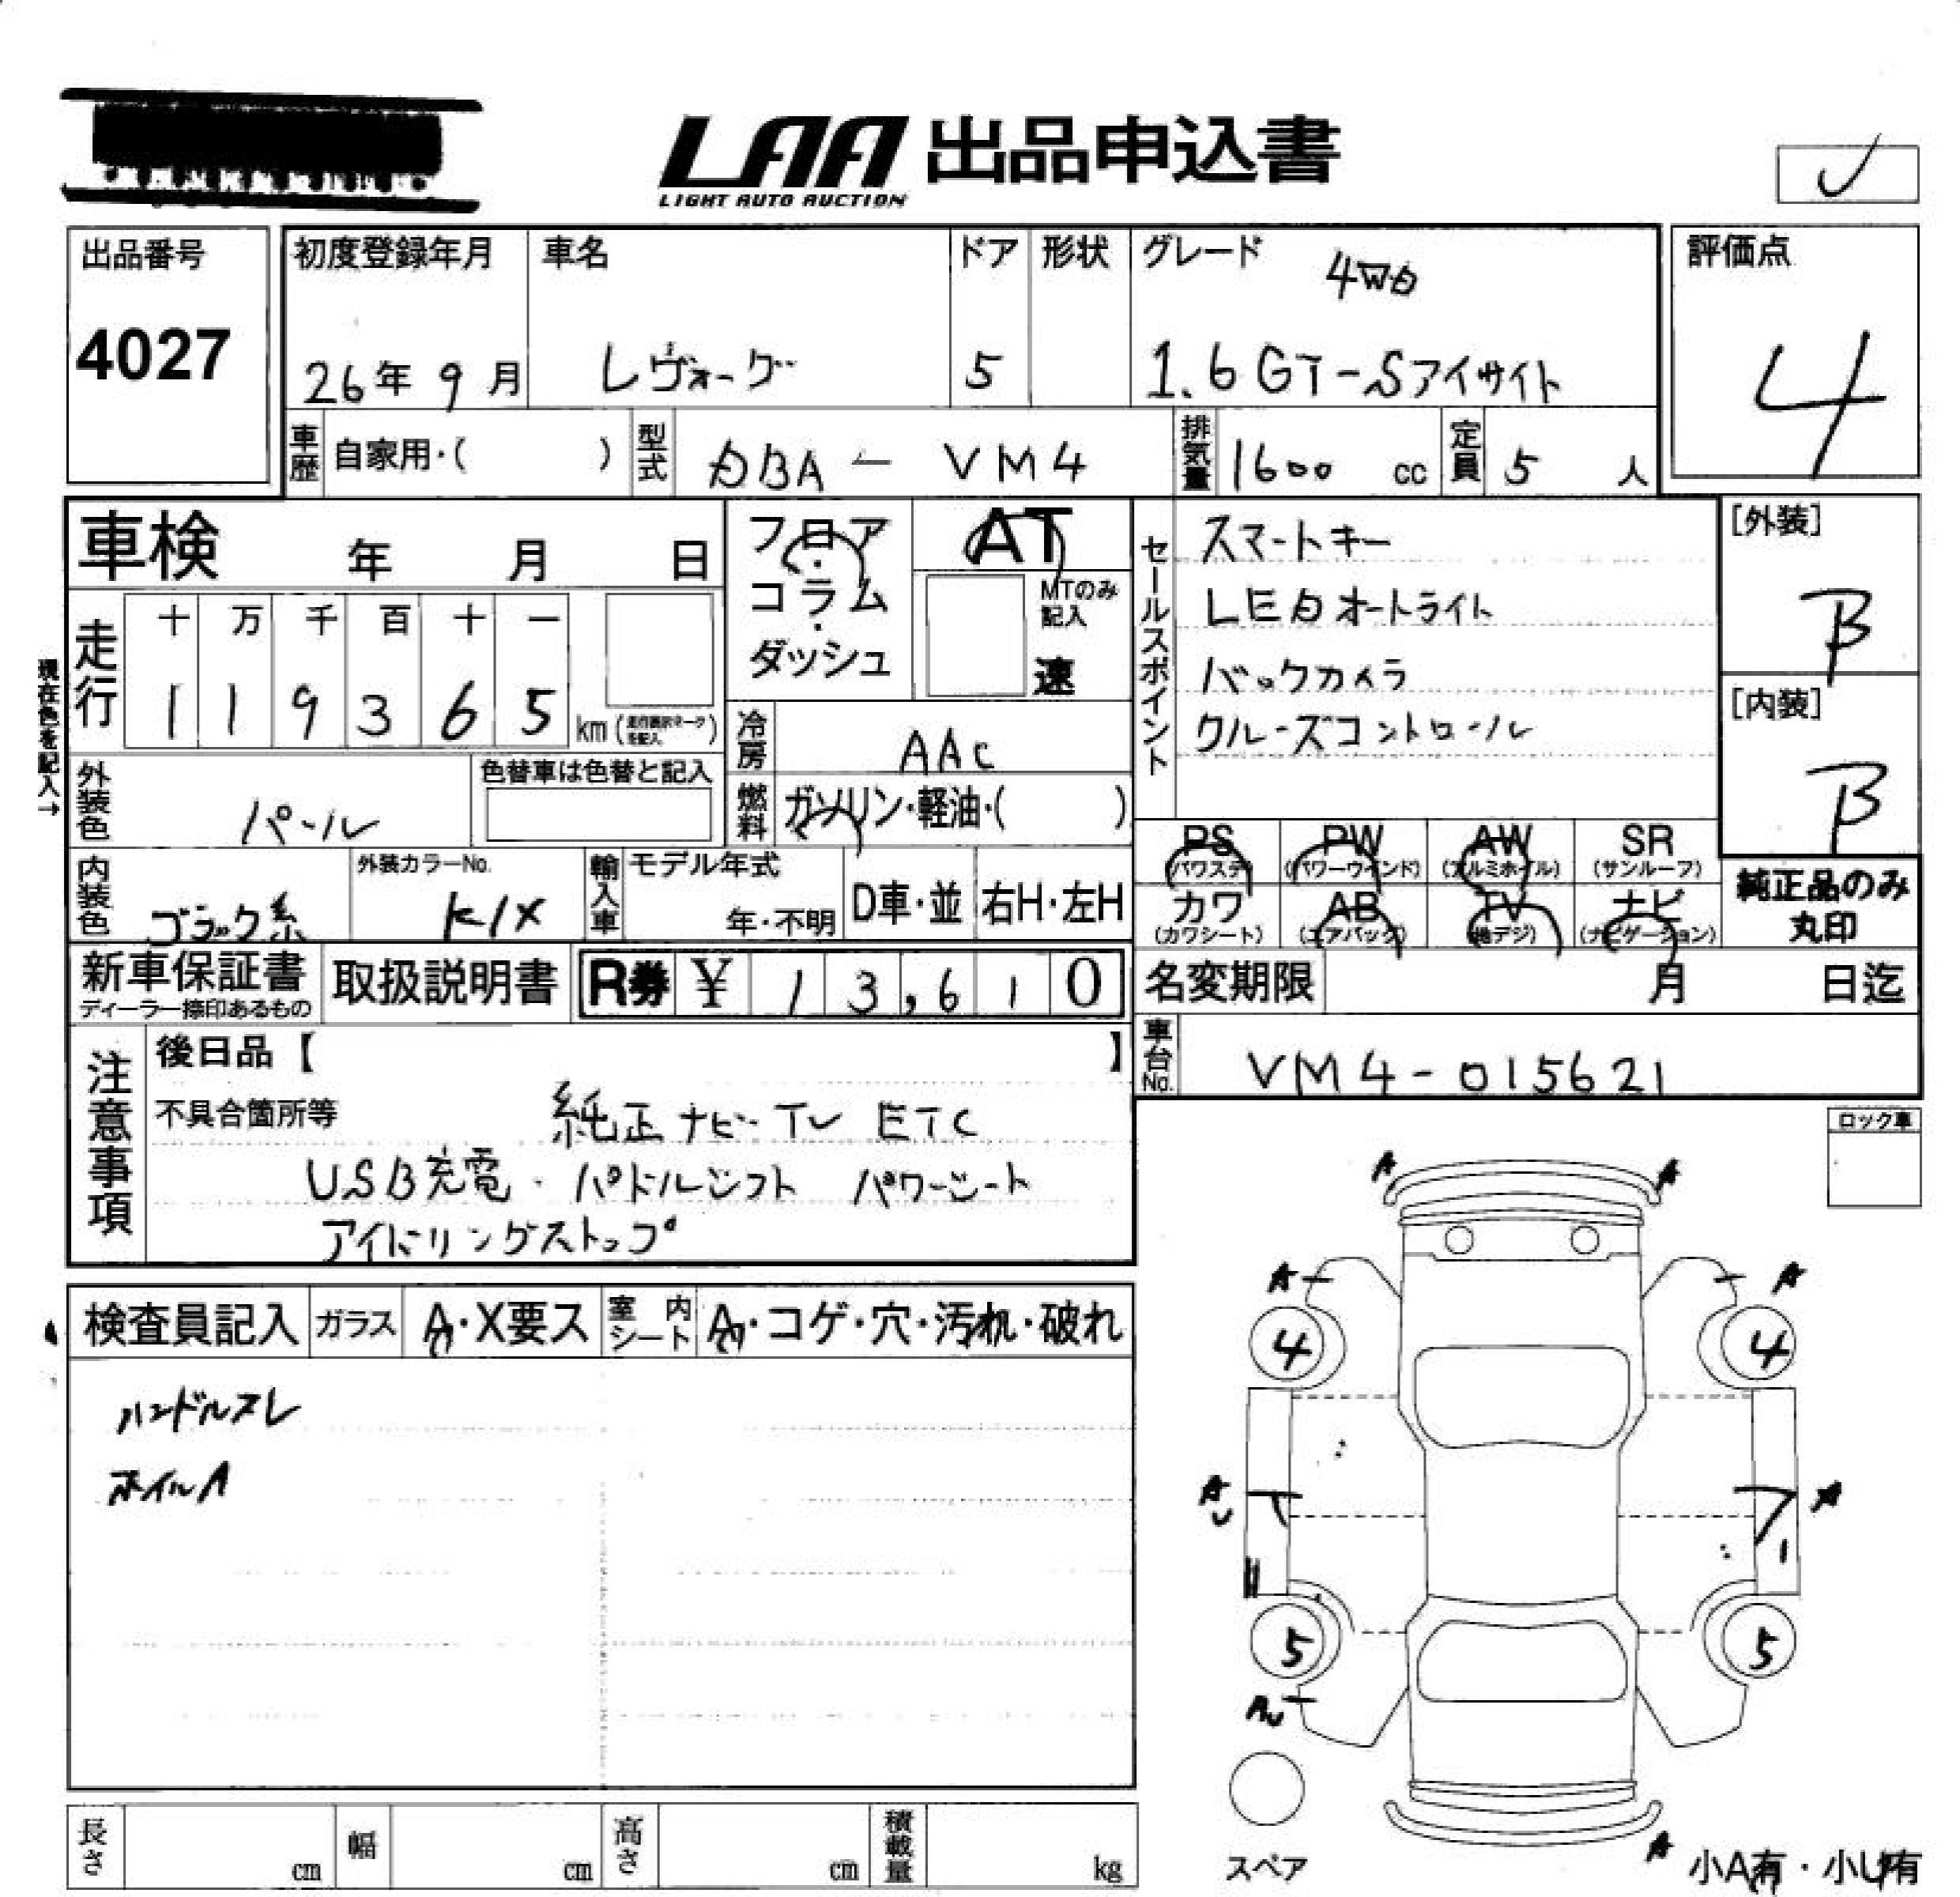 LAA 出品申込書
LIGHT AUTO AUCTION
出品番号
4027
初度登録年月
26年 9月
車名
レヴォーグ
ドア
5
形状
グレード
4WD
1.6GT-Sアイサイト
評価点
4
車歴
自家用・( )
型式
DBA - VM4
排気量
1600 cc
定員
5 人
車検 年 月 日
フロア・コラム・ダッシュ
AT
MTのみ記入
速
セールスポイント
スマートキー
LEDオートライト
バックカメラ
クルーズコントロール
[外装]
B
[内装]
B
現在色を記入→
走行
十 万 千 百 十 一
1 1 9 3 6 5
km
冷房
AAC
外装色
パール
色替車は色替と記入
燃料
ガソリン・軽油・( )
PS (パワステ)
PW (パワーウインド)
AW (アルミホイル)
SR (サンルーフ)
内装色
ブラック系
外装カラーNo.
K1X
輸入車
モデル年式
年・不明
D車・並
右H・左H
カワ (カワシート)
AB (エアバッグ)
TV (地デジ)
ナビ (ナビゲーション)
純正品のみ
丸印
新車保証書
ディーラー捺印あるもの
取扱説明書
R券 ¥ 13,610
名変期限 月 日迄
車台No.
VM4-015621
注意事項
後日品【 】
不具合箇所等
純正ナビ TV ETC
USB充電・パドルシフト パワーシート
アイドリングストップ
ロック車
検査員記入
ガラス
A・X要ス
室内シート
A・コゲ・穴・汚れ・破れ
ハンドルスレ
ホイルA
A A
A A
4 4
A
U
A
5 5
AU
スペア
A
小A有・小U有
長さ cm
幅 cm
高さ cm
積載量 kg